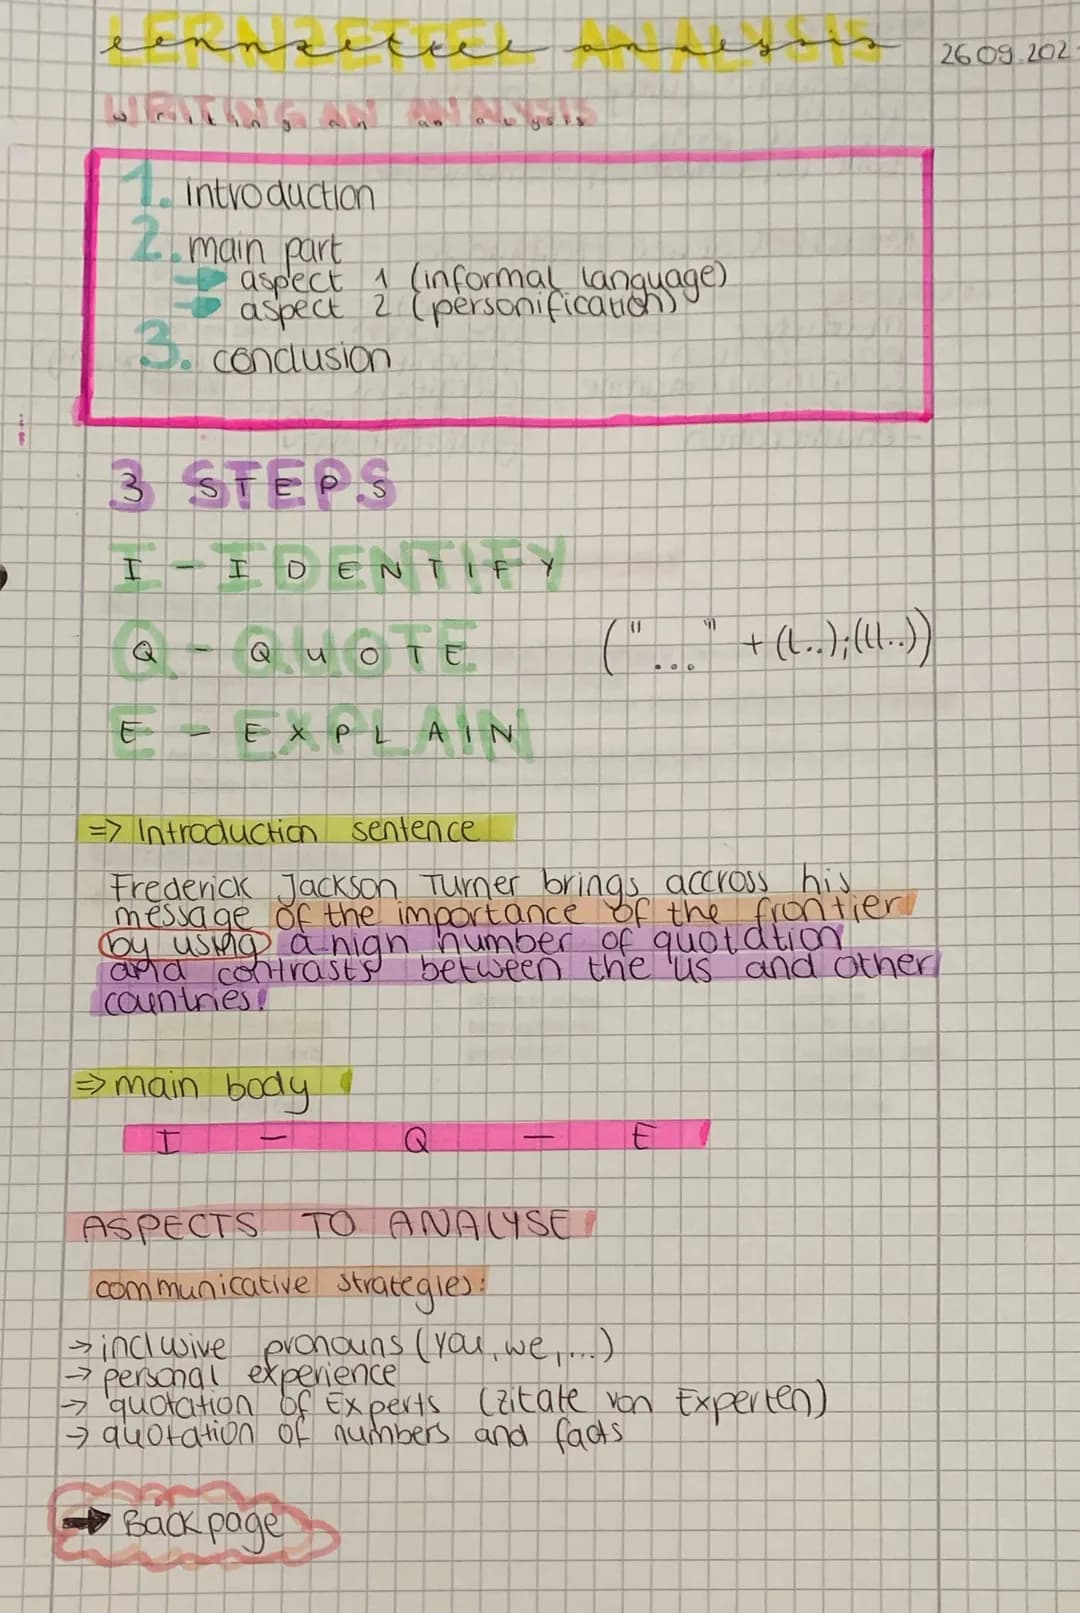 LERNZETTEL ANALYSIS
26.09.202
WRITING AN ANALYSIS
1. introduction
2. main part
→ aspect 1 (informal language)
→ aspect 2 (personification)
3. conclusion
3 STEPS
I - IDENTIFY
Q - QUOTE ("..." + (l..);(ll..))
E - EXPLAIN
=> Introduction sentence
Frederick Jackson Turner brings accross his
message of the importance of the frontier
by using a high number of quotation
and contrasts between the us and other
countries!
=> main body
I - Q - E
ASPECTS TO ANALYSE
communicative strategies:
→ inclusive pronouns (you, we, ...)
→ personal experience
→ quotation of Experts (Zitate von Experten)
→ quotation of numbers and facts
→ Back page